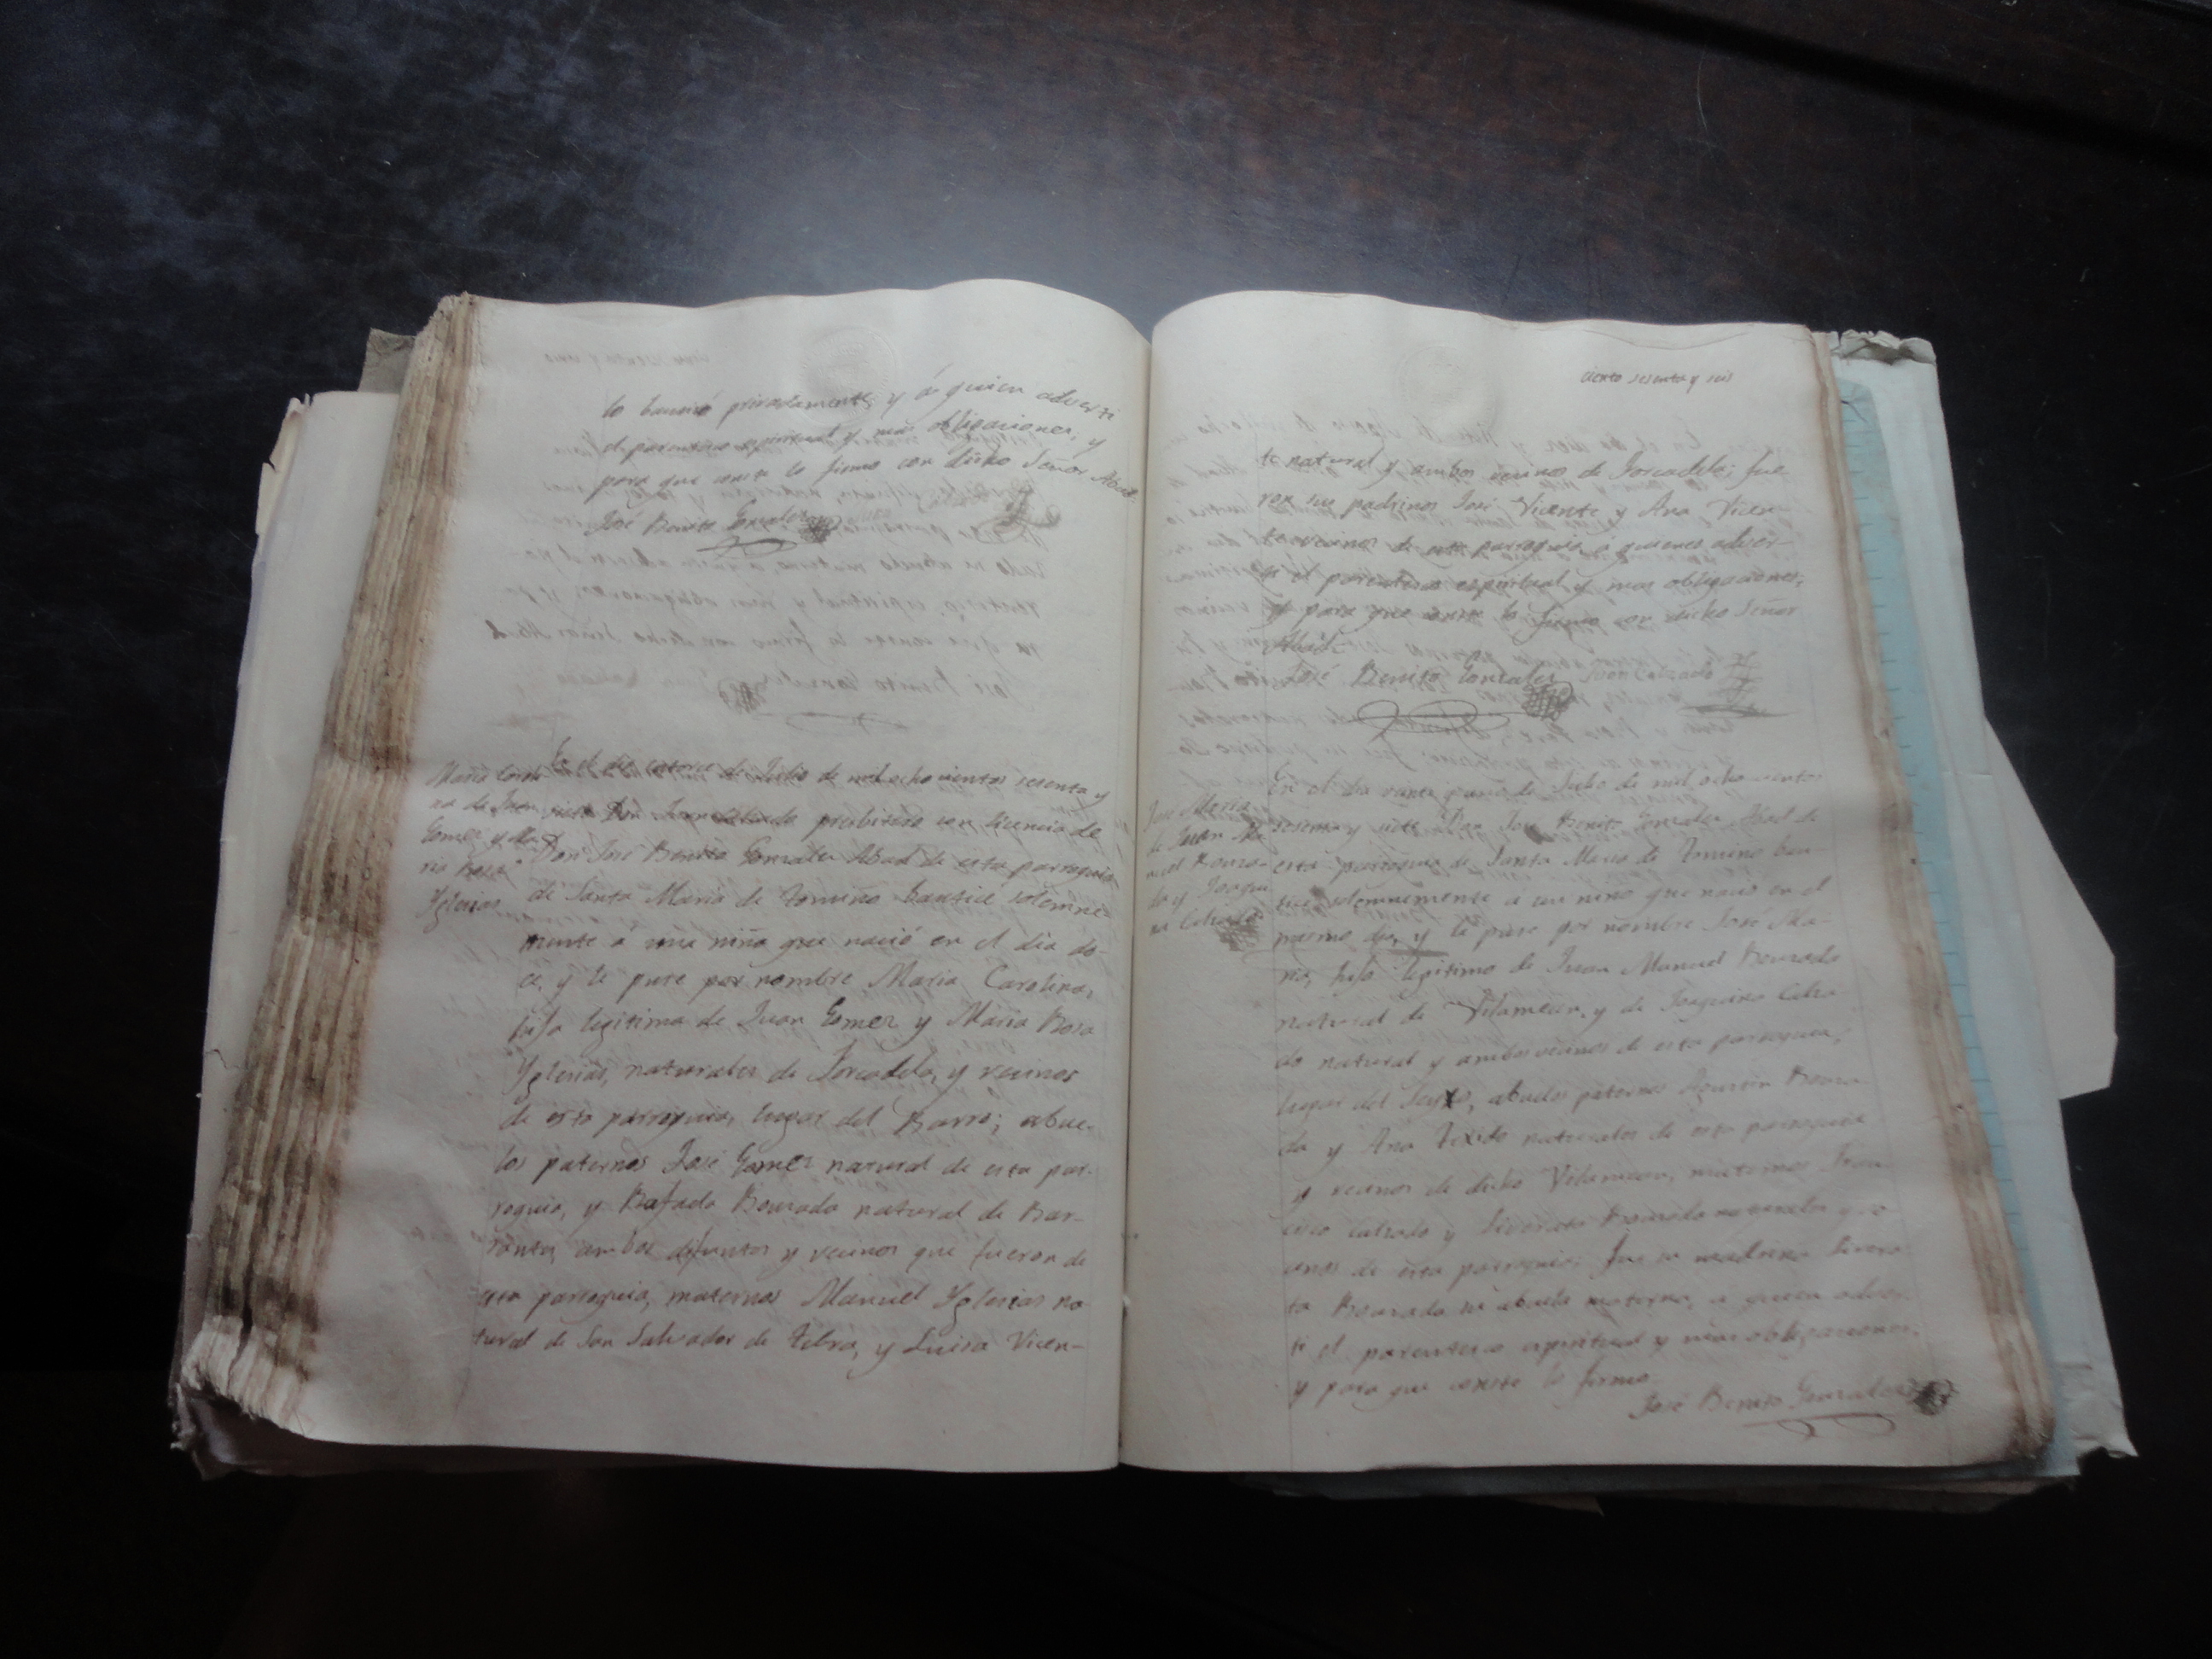 lo bautizó privadamente, y á quien adverti
el parentesco espiritual y mas obligaciones, y
para que conste lo firmo con dicho Señor Abad
José Benito Gonzalez
Maria Caroli
na de Juan
Gomez y Ma
ria Rosa
Yglesias
En el dia catorce de Julio de mil ochocientos sesenta y
siete Don Juan Calzado presbitero con licencia de
Don José Benito Gonzalez Abad de esta parroquia
de Santa Maria de Tomiño bauticé solemne-
mente á una niña que nació en el dia do-
ce, y le puse por nombre Maria Carolina,
hija legitima de Juan Gomez y Maria Rosa
Yglesias, naturales de Forcadela, y vecinos
de esta parroquia, lugar del Barro; abue-
los paternos José Gomez natural de esta par-
roquia, y Rafaela Bouzada natural de Bar-
rantes, ambos difuntos y vecinos que fueron de
esta parroquia, maternos Manuel Yglesias na
tural de San Salvador de Tebra, y Luisa Vicen-
ciento sesenta y seis
te natural y ambos vecinos de Forcadela; fue
ron sus padrinos José Vicente y Ana Vicen-
te vecinos de esta parroquia, á quienes adver-
ti el parentesco espiritual y mas obligaciones;
y para que conste lo firmo con dicho Señor
Abad.
José Benito Gonzalez Juan Calzado
José Maria
de Juan Ma
nuel Bouza-
da y Joaqui
na Calzado
En el dia veinte y uno de Julio de mil ochocientos
sesenta y siete Don José Benito Gonzalez Abad de
esta parroquia de Santa Maria de Tomiño bau-
ticé solemnemente á un niño que nació en el
mismo dia, y le puse por nombre José Ma-
ria, hijo legitimo de Juan Manuel Bouzada
natural de Vilamean, y de Joaquina Calza
do natural y ambos vecinos de esta parroquia,
lugar del Seixo, abuelos paternos Agustin Bouza
da y Ana Texido naturales de esta parroquia
y vecinos de dicho Vilamean, maternos Fran
cisco Calzado y Liberata Bouzada naturales y ve
cinos de esta parroquia; fue su madrina Libera
ta Bouzada su abuela materna, a quien adver
ti el parentesco espiritual y mas obligaciones,
y para que conste lo firmo
José Benito Gonzalez